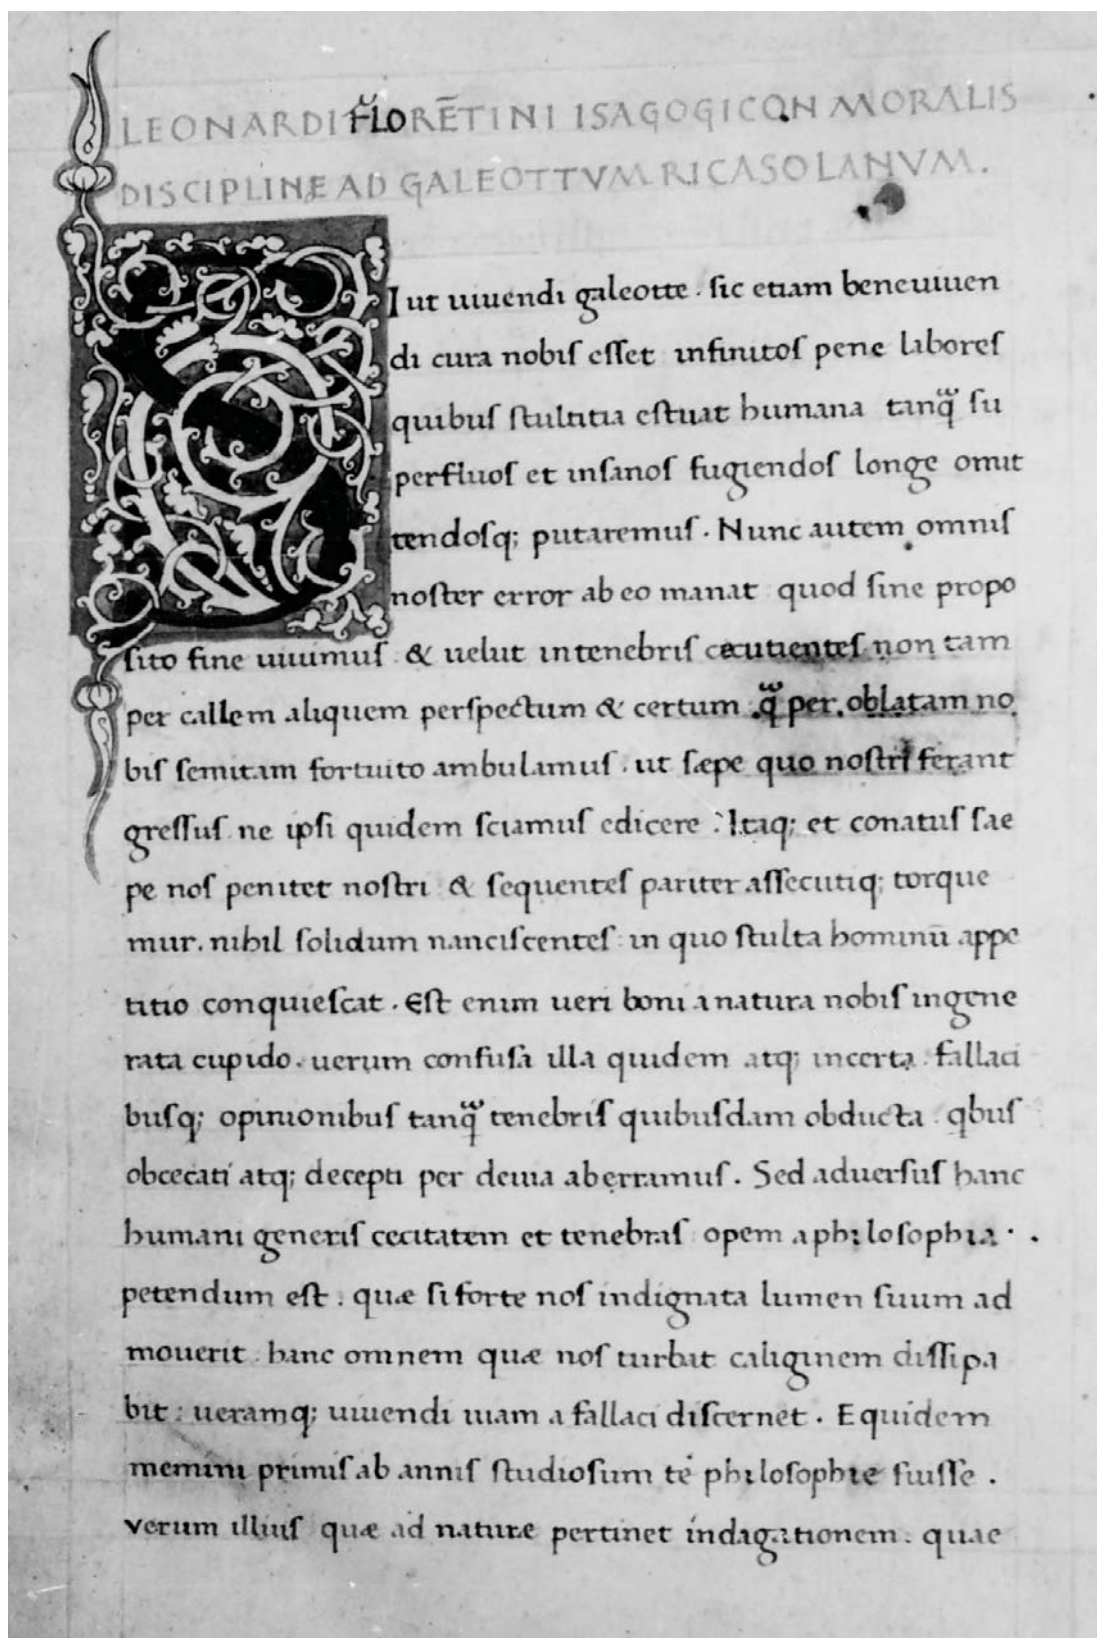 LEONARDI FLORĒTINI ISAGOGICON MORALIS
DISCIPLINÆ AD GALEOTTVM RICASOLANVM.
SI ut uiuendi galeotte · sic etiam bene uiuen
di cura nobiſ eſſet infinitoſ pene laboreſ
quibuſ ſtultitia eſtuat humana tanq̃ ſu
perfluoſ et inſanoſ fugiendoſ longe omit
tendoſq; putaremuſ · Nunc autem omniſ
noſter error ab eo manat quod ſine propo
ſito fine uiuimuſ & uelut in tenebriſ cecutienteſ non tam
per callem aliquem perſpectum & certum q̃ per oblatam no
biſ ſemitam fortuito ambulamuſ · ut ſæpe quo noſtri ferant
greſſuſ ne ipſi quidem ſciamuſ edicere : Itaq; et conatuſ ſae
pe noſ penitet noſtri & ſequenteſ pariter aſſecutiq; torque
mur · nihil ſolidum nanciſcenteſ in quo ſtulta hominū appe
titio conquieſcat · Eſt enim ueri boni a natura nobiſ ingene
rata cupido · uerum confuſa illa quidem atq; incerta · fallaci
buſq; opinionibuſ tanq̃ tenebriſ quibuſdam obducta · qbuſ
obcecati atq; decepti per deuia aberramuſ . Sed aduerſuſ hanc
humani generiſ cecitatem et tenebraſ opem a philoſophia ·
petendum eſt : quæ ſi forte noſ indignata lumen ſuum ad
mouerit · hanc omnem quæ noſ turbat caliginem diſſipa
bit : ueramq; uiuendi uiam a fallaci diſcernet . Equidem
memini primiſ ab anniſ ſtudioſum te philoſophie fuiſſe .
verum illiuſ quæ ad nature pertinet indagationem . quae